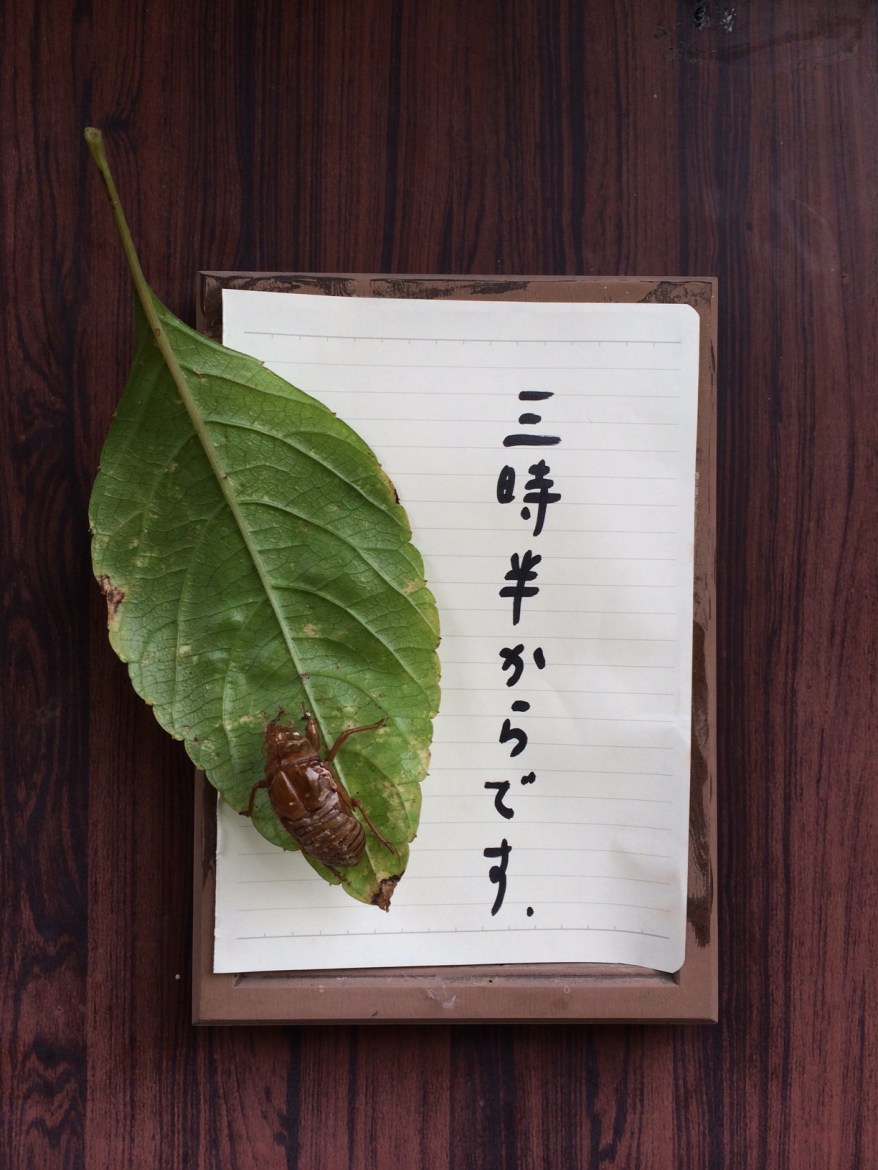 三時半からです.